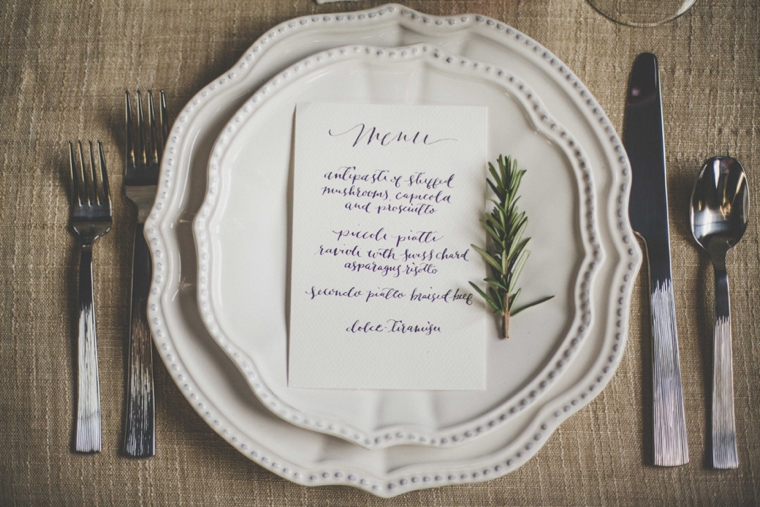 Menu
antipasti of stuffed
mushrooms, capicola
and prosciutto
piccoli piatti
ravioli with swiss chard
asparagus risotto
secondo piatto braised beef
dolce tiramisu